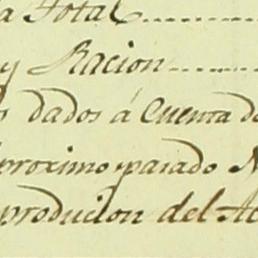 a Total
y Racion
s dados á Cuenta de
proximo pasado
producion del